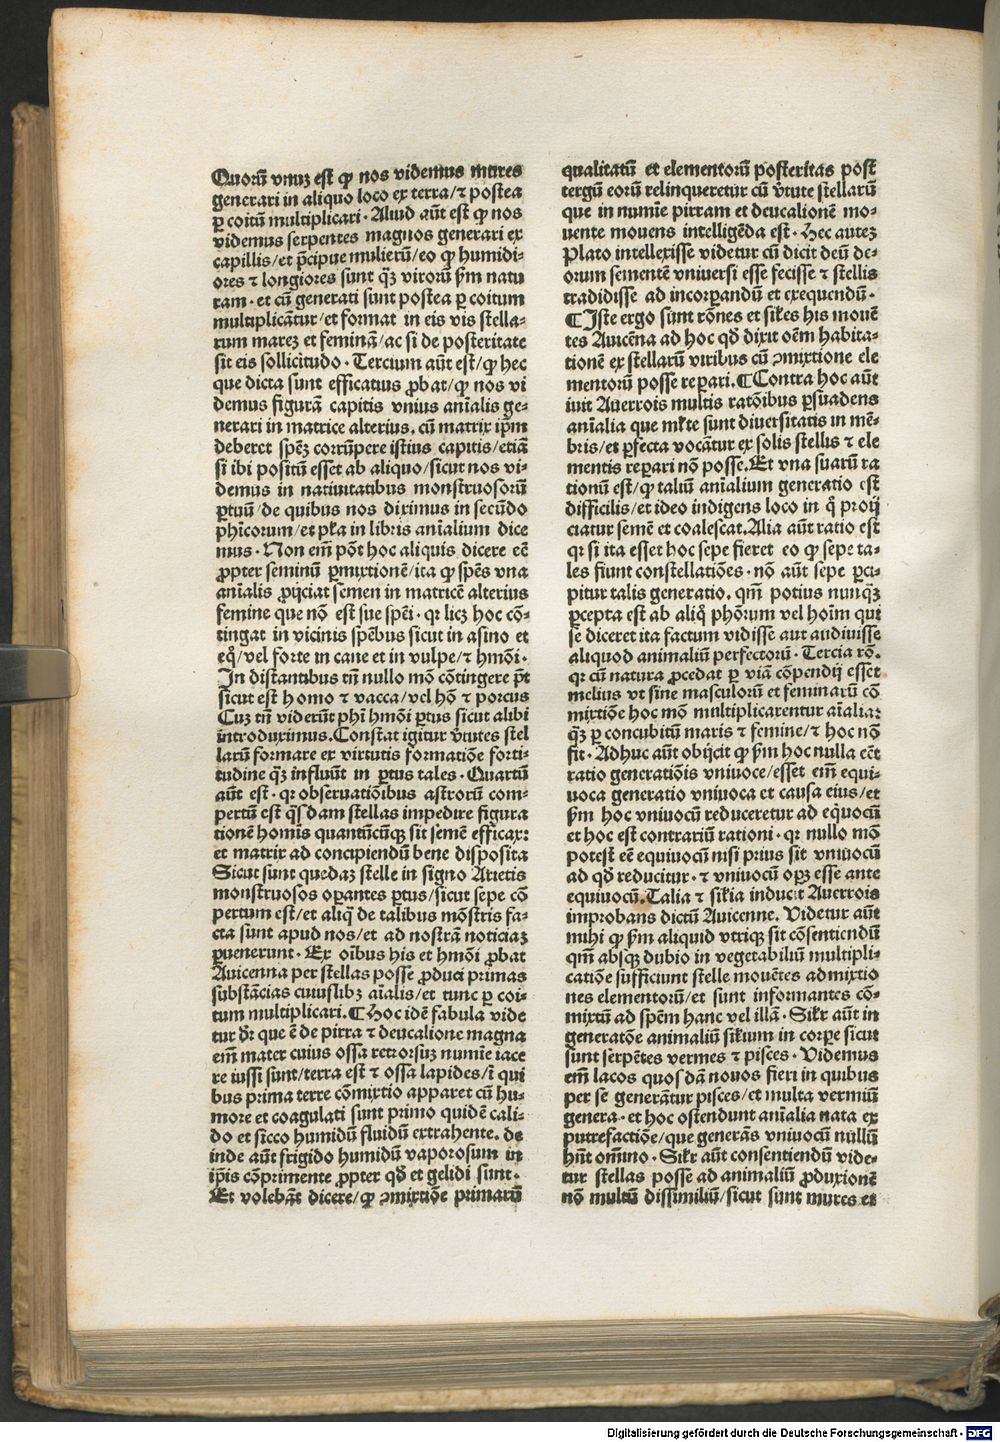 Quorū vnuz est ꝙ nos videmus mures
generari in aliquo loco ex terra/⁊ postea
ꝑ coitū multiplicari · Aliud aūt est ꝙ nos
videmus serpentes magnos generari ex
capillis/et p̄cipue mulierū/eo ꝙ humidi⸗
ores ⁊ longiores sunt q̄ꝫ virorū ẜm natu
ram · et cū generati sunt postea ꝑ coitum
multiplicātur/et format in eis vis stella⸗
rum mareꝫ et feminā/ac si de posteritate
sit eis sollicitudo · Tercium aūt est/ꝙ hec
que dicta sunt efficatius ꝓbat/ꝙ nos vi
demus figurā capitis vnius aīalis ge⸗
nerari in matrice alterius. cū matrix ip̄m
deberet spēꝫ corrūpere istius capitis/etiā
si ibi positū esset ab aliquo/sicut nos vi⸗
demus in natiuitatibus monstruosorū
ꝑtuū/de quibus nos diximus in secūdo
phīcorum/et pl̄a in libris aīalium dice
mus · Non em̄ pōt hoc aliquis dicere eē
ꝓpter seminū ꝑmixtionē/ita ꝙ spēs vna
aīalis ꝓijciat semen in matricē alterius
femine que nō est sue spēi · qꝛ licꝫ hoc cō⸗
tingat in vicinis spēbus sicut in asino et
eq̄/vel forte in cane et in vulpe/⁊ hmōi ·
In distantibus tn̄ nullo mō cōtingere p̄t
sicut est homo ⁊ vacca/vel hō ⁊ porcus
Cuꝫ tn̄ viderūt phī hmōi ꝑtus sicut alibi
introduximus. Constat igitur v̄tutes stel
larū formare ex virtutis formatiōe forti⸗
tudine q̄ꝫ influūt in ꝑtus tales · Quartū
aūt est · qꝛ obseruatiōibus astrorū com⸗
pertū est q̄sdam stellas impedire figura
tionē homīs quantūcūqꝫ sit semē efficax:
et matrix ad concipiendū bene disposita
Sicut sunt quedaꝫ stelle in signo Arietis
monstruosos oꝑantes ꝑtus/sicut sepe cō
pertum est/et aliq̄ de talibus mōstris fa⸗
cta sunt apud nos/et ad nostrā noticiaꝫ
ꝑuenerunt · Ex oībus his et hmōi ꝓbat
Auicenna per stellas posse ꝓduci primas
substācias cuiuslibꝫ aīalis/et tunc ꝑ coi⸗
tum multiplicari. ¶ Hoc idē fabula vide
tur dr̄ que ē de pirra ⁊ deucalione magna
em̄ mater cuius ossa retrorsuꝫ numīe iace
re iussi sunt/terra est ⁊ ossa lapides/ī qui
bus prima terre cōmixtio apparet cū hu⸗
more et coagulati sunt primo quidē cali⸗
do et sicco humidū fluidū extrahente. de
inde aūt frigido humidū vaporosum in
ip̄is cōprimente ꝓpter qd̄ et gelidi sunt ·
Et volebāt dicere/ꝙ ꝯmixtiōe primarū
qualitatū et elementorū posteritas post
tergū eorū relinqueretur cū v̄tute stellarū
que in numīe pirram et deucalionē mo⸗
uente mouens intelligēda est · Hec auteꝫ
Plato intellexisse videtur cū dicit deū de⸗
orum sementē vniuersi esse fecisse ⁊ stellis
tradidisse ad incorꝑandū et exequendū ·
¶ Iste ergo sunt rōnes et siłes his mouē
tes Auicēna ad hoc qd̄ dixit oēm habita⸗
tionē ex stellarū viribus cū ꝯmixtione ele
mentorū posse reꝑari. ¶ Contra hoc aūt
iuit Auerrois multis ratōibus ꝑsuadens
aīalia que młte sunt diuersitatis in mē⸗
bris/et ꝑfecta vocātur ex solis stellis ⁊ ele
mentis reꝑari nō posse. Et vna suarū ra
tionū est/ꝙ taliū aīalium generatio est
difficilis/et ideo indigens loco in q̄ ꝓij
ciatur semē et coalescat. Alia aūt ratio est
qꝛ si ita esset hoc sepe fieret eo ꝙ sepe ta⸗
les fiunt constellatiōes · nō aūt sepe ꝑci⸗
pitur talis generatio. qm̄ potius nunq̄ꝫ
ꝑcepta est ab aliq̄ phōrum vel hoīm qui
se diceret ita factum vidisse aut audiuisse
aliquod animaliū perfectorū · Tercia rō.
qꝛ cū natura ꝓcedat ꝑ viā cōpendij esset
melius vt sine masculorū et feminarū cō
mixtiōe hoc mō multiplicarentur aīalia:
q̄ꝫ ꝑ concubitū maris ⁊ femine/⁊ hoc nō
fit · Adhuc aūt obijcit ꝙ ẜm hoc nulla eēt
ratio generatiōis vniuoce/esset em̄ equi⸗
uoca generatio vniuoca et causa eius/et
ẜm hoc vniuocū reduceretur ad eq̄uocū
et hoc est contrariū rationi · qꝛ nullo mō
potest eē equiuocū nisi prius sit vniuocū
ad qd̄ reducitur · ⁊ vniuocū opꝫ esse ante
equiuocū. Talia ⁊ siłia inducit Auerrois
improbans dictū Auicenne. Videtur aūt
mihi ꝙ ẜm aliquid vtriqꝫ sit cōsentiendū
qm̄ absqꝫ dubio in vegetabiliū multipli⸗
catiōe sufficiunt stelle mouētes ad mixtio
nes elementorū/et sunt informantes cō⸗
mixtū ad spēm hanc vel illā · Siłr aūt in
generatōe animaliū siłium in corꝑe sicut
sunt serpētes vermes ⁊ pisces · Videmus
em̄ lacos quosdā nouos fieri in quibus
per se generātur pisces/et multa vermiū
genera · et hoc ostendunt aīalia nata ex
putrefactiōe/que generās vniuocū nullū
hn̄t om̄ino · Siłr aūt consentiendū vide⸗
tur stellas posse ad animaliū ꝓduxionē
nō multū dissimiliū/sicut sunt mures et
Digitalisierung gefördert durch die Deutsche Forschungsgemeinschaft - DFG